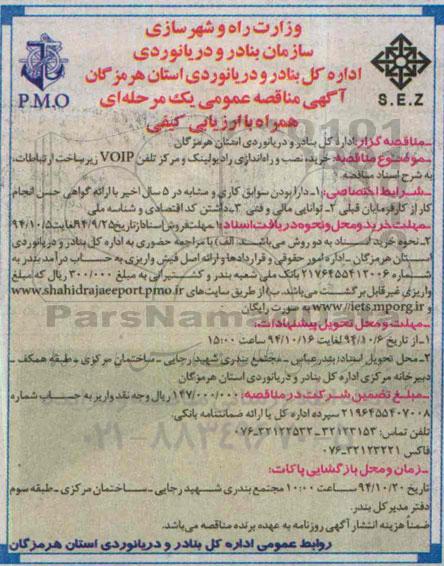 وزارت راه و شهرسازی
سازمان بنادر و دریانوردی
اداره کل بنادر و دریانوردی استان هرمزگان
آگهی مناقصه عمومی یک مرحله‌ای
همراه با ارزیابی کیفی
P.M.O
S.E.Z
ـ مناقصه گزار: اداره کل بنادر و دریانوردی استان هرمزگان
ـ موضوع مناقصه: خرید، نصب و راه‌اندازی رادیو لینک و مرکز تلفن VOIP زیرساخت ارتباطات،
به شرح اسناد مناقصه
ـ شرایط اختصاصی: ۱ـ دارا بودن سوابق کاری و مشابه در ۵ سال اخیر با ارائه گواهی حسن انجام
کار از کارفرمایان قبلی ۲ـ توانایی مالی و فنی ۳ـ داشتن کد اقتصادی و شناسه ملی
ـ مهلت خرید و محل و نحوه دریافت اسناد: ۱ـ مهلت فروش اسناد از تاریخ ۹۴/۹/۲۵ لغایت ۹۴/۱۰/۵
۲ـ نحوه خرید اسناد به دو روش می‌باشد: الف) با مراجعه حضوری به اداره کل بنادر و دریانوردی
استان هرمزگان ـ اداره امور حقوقی و قراردادها و ارائه اصل فیش واریزی به حساب درآمد بندر به
شماره ۲۱۷۶۴۵۵۴۱۲۰۰۶ بانک ملی شعبه بندر و کشتیرانی به مبلغ ۳۰۰/۰۰۰ ریال که مبلغ
واریزی غیرقابل برگشت می‌باشد. ب) از طریق سایت‌های www.shahidrajaeeport.pmo.ir
و www.iets.mporg.ir به صورت رایگان
ـ مهلت و محل تحویل پیشنهادات:
۱ـ از تاریخ ۹۴/۱۰/۶ لغایت ۹۴/۱۰/۱۶ ساعت ۱۵:۰۰
۲ـ محل تحویل اسناد: بندرعباس ـ مجتمع بندری شهید رجایی ـ ساختمان مرکزی ـ طبقه همکف ـ
دبیرخانه مرکزی اداره کل بنادر و دریانوردی استان هرمزگان
ـ مبلغ تضمین شرکت در مناقصه: ۱۴۷/۰۰۰/۰۰۰ ریال وجه نقد واریز به حساب شماره
۲۱۹۶۴۵۵۴۰۷۰۰۸ سپرده اداره کل یا ارائه ضمانتنامه بانکی.
تلفن تماس: ۳۲۱۲۳۱۵۳ ـ ۳۲۱۲۲۵۳۲ـ۰۷۶
فاکس ۳۲۱۲۳۲۲۱ـ۰۷۶
ـ زمان و محل بازگشایی پاکات:
تاریخ ۹۴/۱۰/۲۰ ساعت ۱۰:۰۰ مجتمع بندری شهید رجایی ـ ساختمان مرکزی ـ طبقه سوم
دفتر مدیر کل بندر.
ضمناً هزینه انتشار آگهی روزنامه به عهده برنده مناقصه می‌باشد.
روابط عمومی اداره کل بنادر و دریانوردی استان هرمزگان